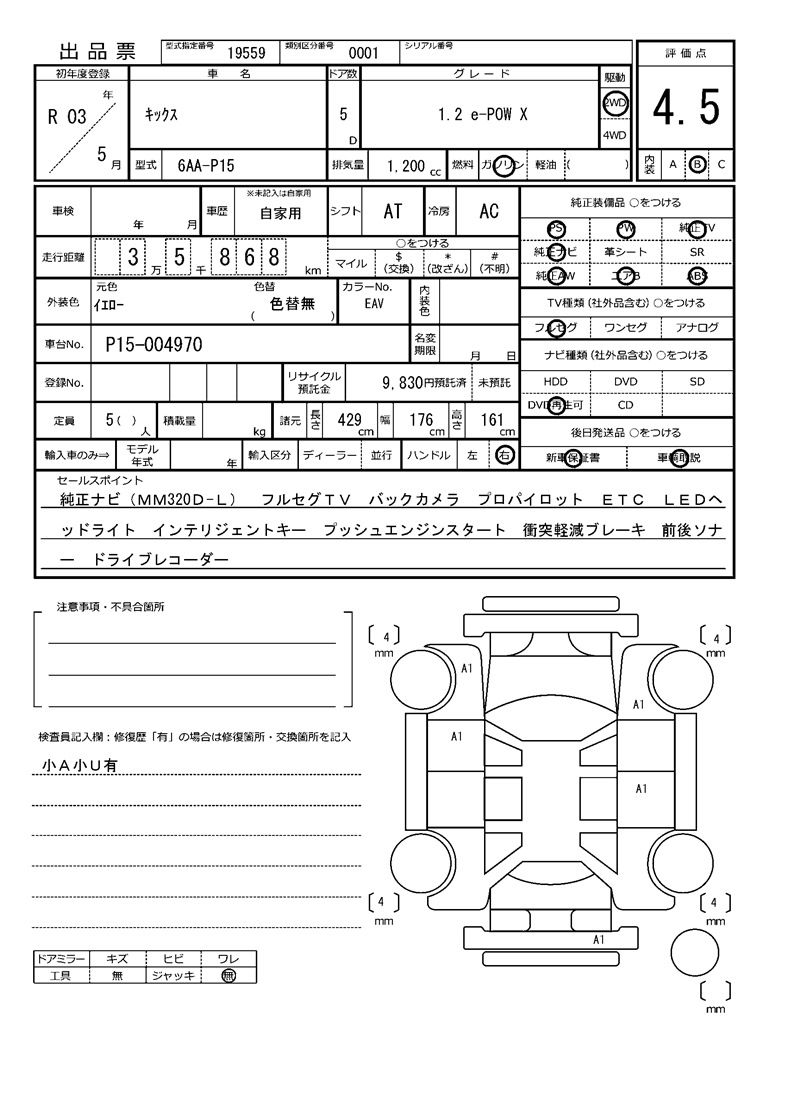 出品票 型式指定番号 19559 類別区分番号 0001 シリアル番号
評価点
初年度登録 車名 ドア数 グレード 駆動
R 03 年 5 月 キックス 5 D 1.2 e-POW X 2WD 4WD
4.5
型式 6AA-P15 排気量 1,200 cc 燃料 ガソリン 軽油 ( )
内装 A B C
車検 年 月 車歴 ※未記入は自家用 自家用 シフト AT 冷房 AC
走行距離 3 万 5 千 8 6 8 km ○をつける
マイル $ (交換) * (改ざん) # (不明)
外装色 元色 イエロー 色替 色替無 ( ) カラーNo. EAV 内装色
車台No. P15-004970 名変期限 月 日
登録No. リサイクル預託金 9,830円預託済 未預託
定員 5( ) 人 積載量 kg 諸元 長さ 429 cm 幅 176 cm 高さ 161 cm
輸入車のみ⇒ モデル年式 年 輸入区分 ディーラー 並行 ハンドル 左 右
純正装備品 ○をつける
PS PW 純正TV
純正ナビ 革シート SR
純正AW エアB ABS
TV種類(社外品含む)○をつける
フルセグ ワンセグ アナログ
ナビ種類(社外品含む)○をつける
HDD DVD SD
DVD再生可 CD
後日発送品 ○をつける
新車保証書 車輌取説
セールスポイント
純正ナビ(MM320D-L) フルセグTV バックカメラ プロパイロット ETC LEDヘ
ッドライト インテリジェントキー プッシュエンジンスタート 衝突軽減ブレーキ 前後ソナ
ー ドライブレコーダー
注意事項・不具合箇所
検査員記入欄:修復歴「有」の場合は修復箇所・交換箇所を記入
小A小U有
ドアミラー キズ ヒビ ワレ
工具 無 ジャッキ 無
[ 4 ] mm
[ 4 ] mm
A1
A1
A1
A1
[ 4 ] mm
[ 4 ] mm
A1
[ ] mm